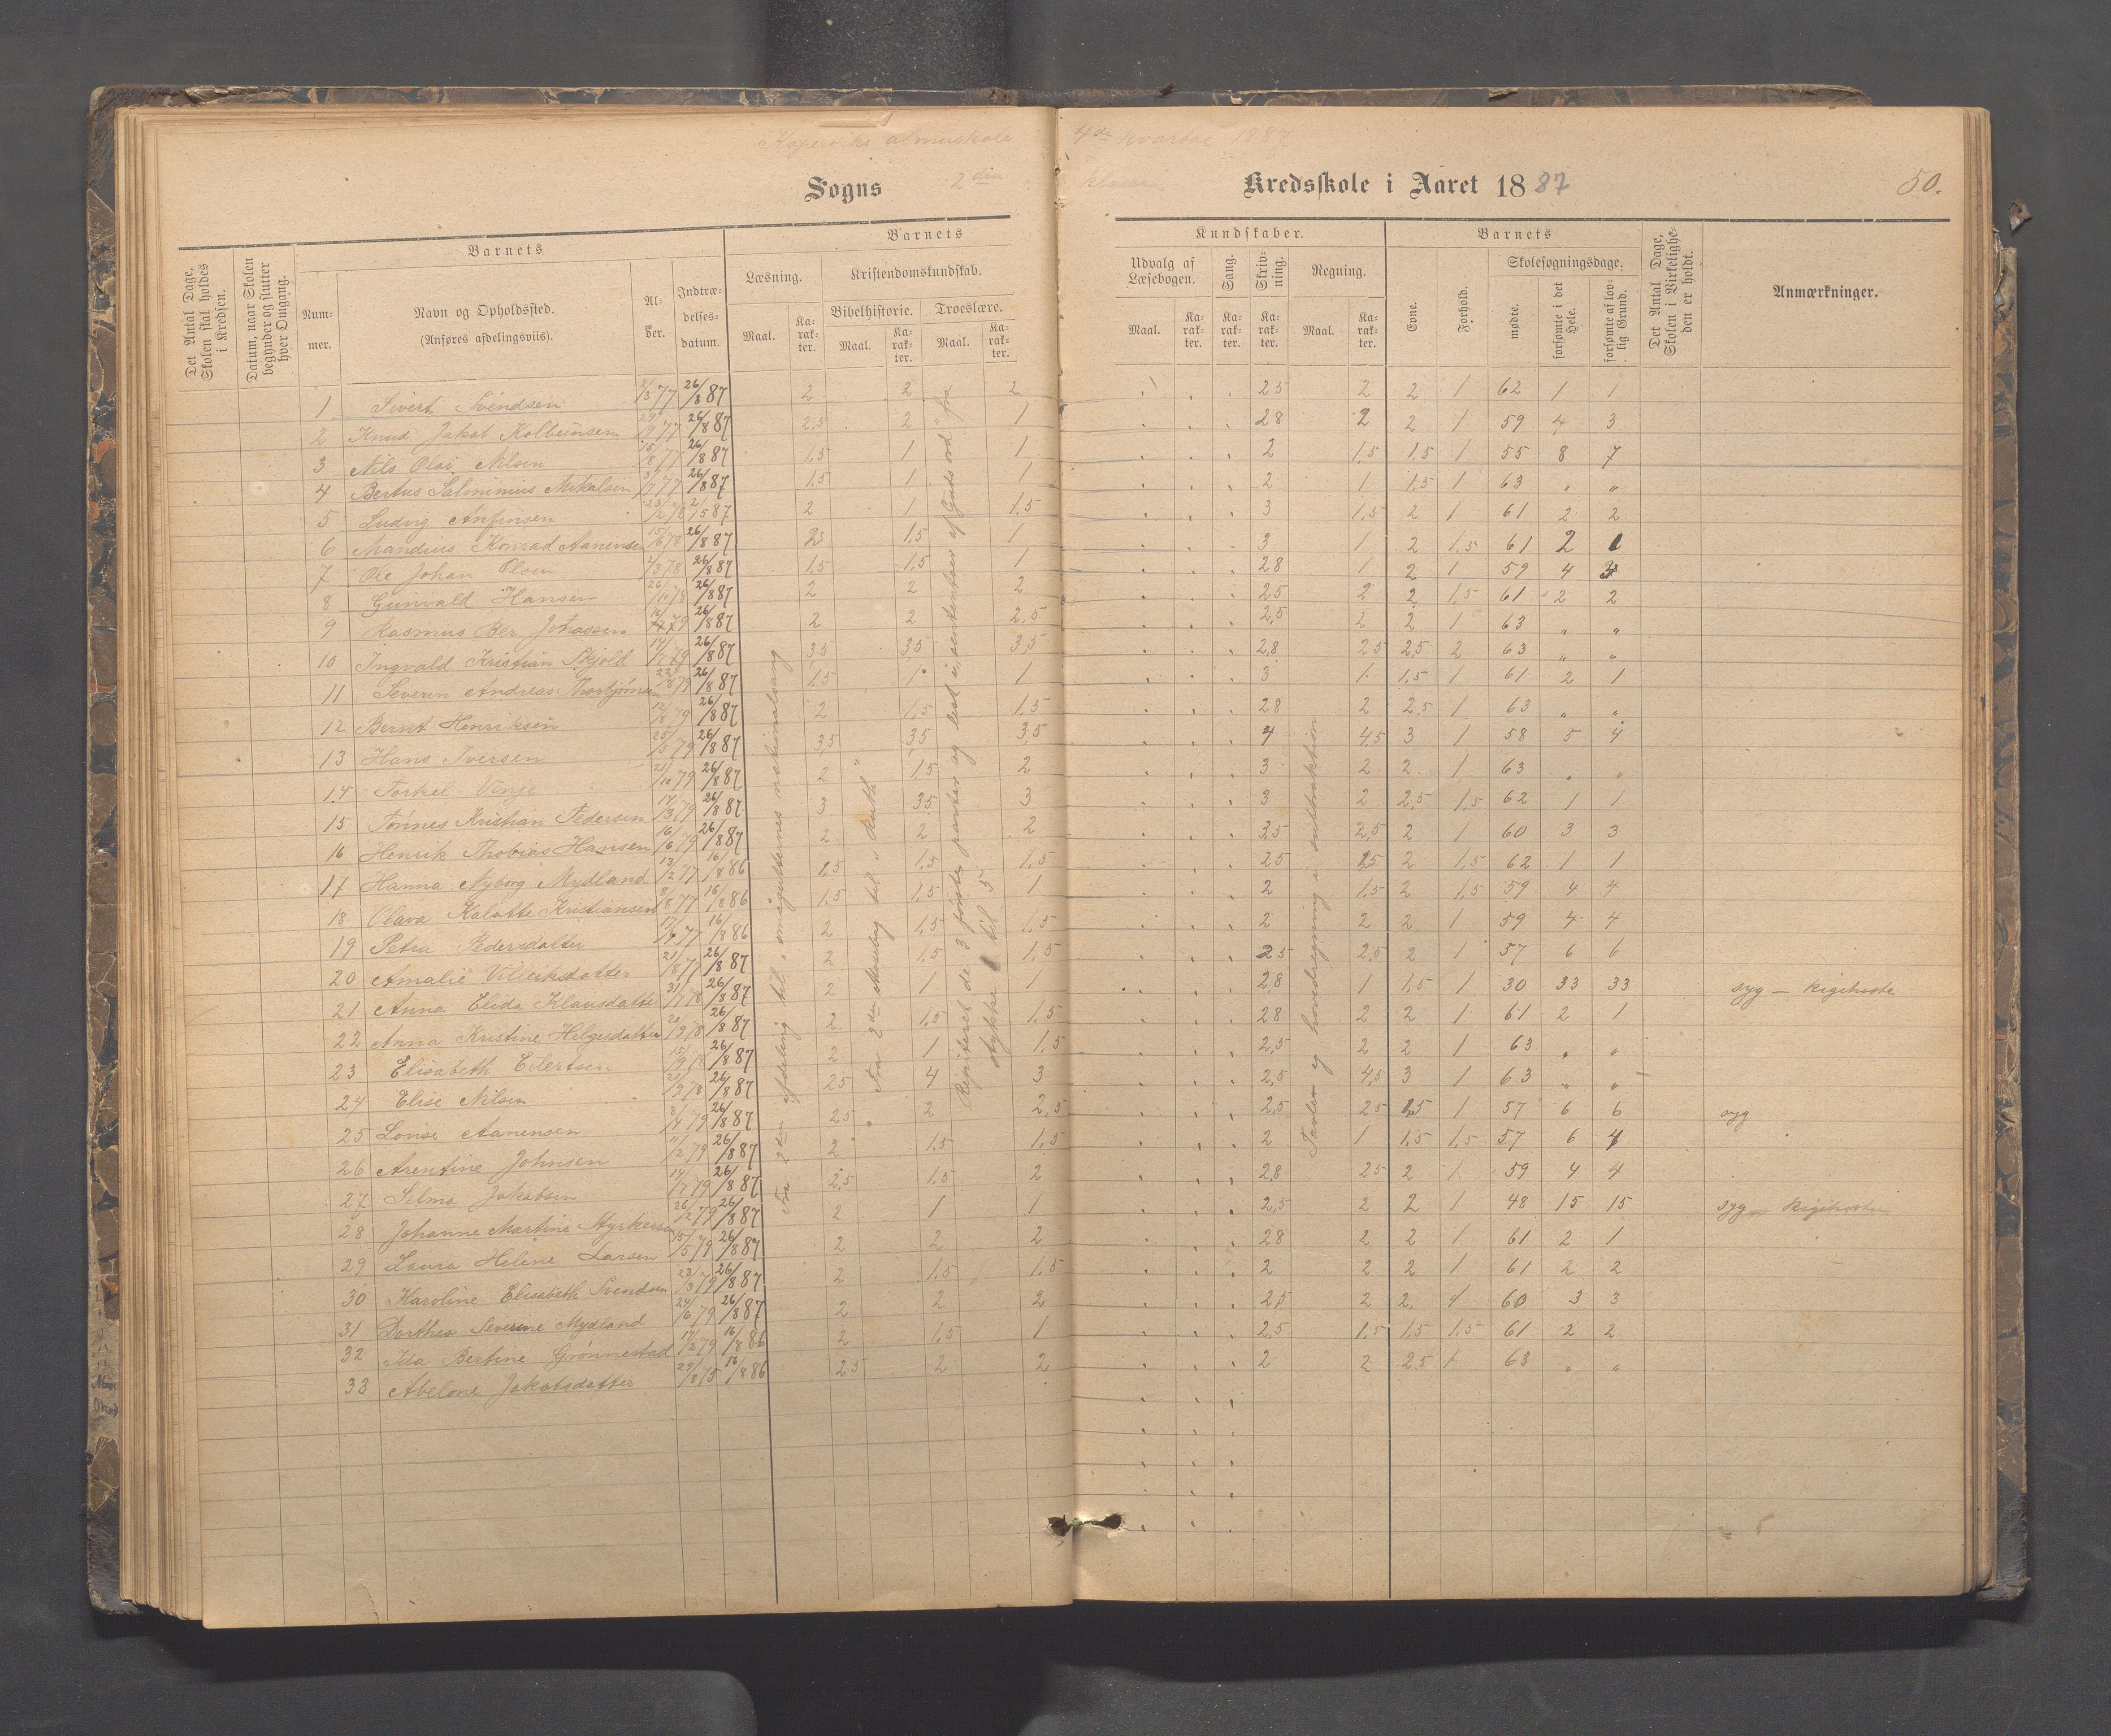 Kopervik almuskole 4de kvartal 1887
Sogns 2den klasse Kredsskole i Aaret 1887 50.
Det Antal Dage, Skolen skal holdes i Kredsen.
Datum, naar Skolen begynder og slutter hver Omgang.
Barnets
Nummer.
Navn og Opholdssted.
(Anføres afdelingsviis).
Alder.
Indtrædelsesdatum.
Barnets Kundskaber.
Læsning. Maal. Karakter.
Kristendomskundskab.
Bibelhistorie. Maal. Karakter.
Troeslære. Maal. Karakter.
Udvalg af Læsebogen. Maal. Karakter.
Sang. Karakter.
Skrivning. Karakter.
Regning. Maal. Karakter.
Barnets
Evne.
Forhold.
Skolesøgningsdage.
mødte.
forsømte i det Hele.
forsømte af lovlig Grund.
Det Antal Dage, Skolen i Virkeligheden er holdt.
Anmærkninger.
1 Sivert Svendsen 2/3 77 26/8 87 2 2 2 25 2 2 1 62 1 1
2 Knud Jakob Kolbeinsen 77 26/8 87 2,5 2 1 28 2 2 1 59 4 3
3 Nils Olai Nilsen 15/8 77 26/8 87 1,5 1 1 2 1,5 1,5 1 55 8 7
4 Bertus Salminius Mikalsen 77 26/8 87 1,5 1 1 2 1 1,5 1 63 " "
5 Ludvig Anfinsen 23/12 78 2/5 87 2 1 1,5 3 1,5 2 1 61 2 2
6 Mandius Konrad Aanensen 15/6 78 26/8 87 25 1,5 1 3 1 2 1,5 61 2 1
7 Ole Johan Olsen 78 26/8 87 1,5 1,5 1 28 1 2 1 59 4
8 Gunvald Hansen 26/10 78 26/8 87 2 2 2 25 2 2 1,5 61 2 2
9 Rasmus Ber. Johassen 79 26/8 87 2 2 2,5 2,5 2 2 1 63 " "
10 Ingvald Kristian Skjold 79 26/8 87 35 35 3,5 2,8 25 2,5 2 63 " "
11 Severin Andreas Thorbjørnsen 22/8 79 26/8 87 1,5 1 1 3 1 1,5 1 61 2 1
12 Bernt Henriksen 12/8 79 26/8 87 2 1,5 1,5 28 2 2,5 1 63 " "
13 Hans Iversen 25/5 79 26/8 87 3,5 35 3,5 4 4,5 3 1 58 5 4
14 Torkel Vinje 21/10 79 26/8 87 2 15 2 3 2 2 1 63 " "
15 Tønnes Kristian Pedersen 14/3 79 26/8 87 3 35 3 3 2 2,5 1,5 62 1 1
16 Henrik Thobias Hansen 16/6 79 26/8 87 2 2 2 3,5 2,5 2 1 60 3 3
17 Hanna Nyborg Mydland 13/12 77 16/8 86 1,5 1,5 25 25 2 1,5 62 1 1
18 Olava Kalotte Kristiansen 8/8 77 16/8 86 1,5 1,5 1 2 1,5 2 1,5 59 4 4
19 Petra Pedersdatter 77 16/8 86 2 1,5 1,5 2 2 2 1 59 4 4
20 Amalie Villeiksdatter 21/8 77 26/8 87 2 1,5 1,5 25 2,5 2 1 57 6 6
21 Anna Elida Klausdatter 78 26/8 87 2 1 1 2,8 1 1,5 1 30 33 33 syg — kigihoste
22 Anna Kristine Helgesdatter 20/9 78 26/8 87 2 1,5 1,5 28 2 2 1 61 2 1
23 Elisabeth Eilertsen 15/9 78 26/8 87 2 1 1,5 2,5 2 2 1 63 " "
24 Elise Nilsen 78 26/8 87 25 4 3 2,5 4,5 3 1 63 " "
25 Lovise Aanensen 8/4 79 26/8 87 25 2 2,5 2,5 25 1 57 6 6 syg
26 Arentine Johnsen 11/2 79 26/8 87 2 1,5 1,5 2 1 1,5 1,5 57 6 4
27 Selma Jakobsen 79 26/8 87 2,5 1,5 2 2,8 25 2 1 59 4 4
28 Johanne Martine Styrkersen 26/12 79 26/8 87 2 1 1 2,5 2 2 1 48 15 15 syg — kigihoste
29 Laura Helene Larsen 15/5 79 26/8 87 2 2 2 28 2 2 1 61 2 1
30 Karoline Elisabeth Svendsen 23/3 79 26/8 87 2 1,5 1,5 2 2 2 1 61 2 2
31 Dorthea Severine Mydland 24/6 79 26/8 87 2 2 2 2,5 2 2 1 60 3 3
32 Ida Bertine Grønnestad 17/12 79 16/8 86 2 1,5 1 2,5 1,5 1,5 1,5 61 2 2
33 Abelone Jakobsdatter 29/8 75 16/8 86 25 2 2 2 2 25 1 63 " "
Fra 2den afdeling til „smågutternes nationalsang
Fra 2den Mosebog til „Ruth"
Repiteret de 3 første parter og lest i „sententser af Guds ord" fra stykke 1 til 5
Tavler og hovedregning i subtraktion